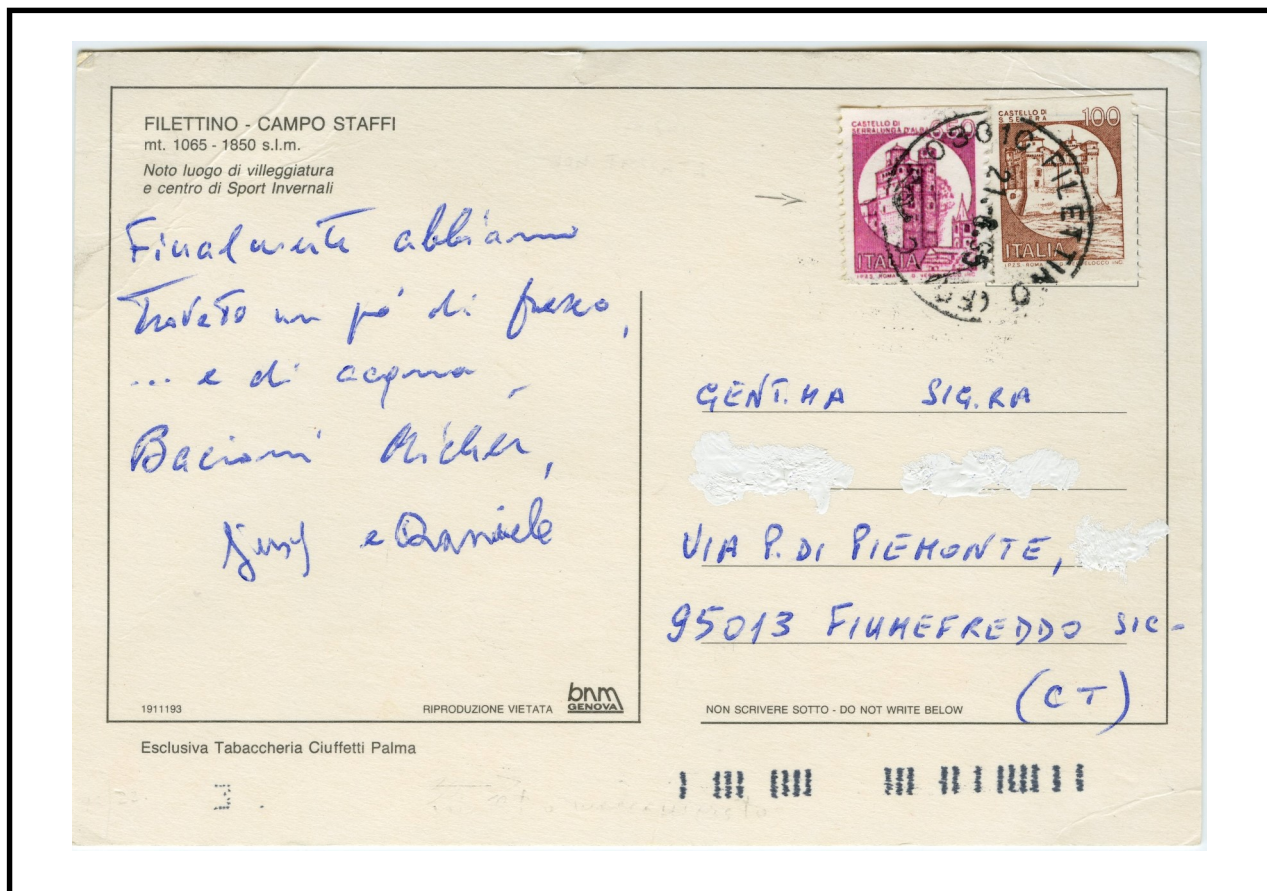 FILETTINO - CAMPO STAFFI
mt. 1065 - 1850 s.l.m.
Noto luogo di villeggiatura
e centro di Sport Invernali
Finalmente abbiamo
trovato un pó di fresco,
... e di acqua,
Bacioni
e Daniele
1911193
RIPRODUZIONE VIETATA
bnm
GENOVA
Esclusiva Tabaccheria Ciuffetti Palma
CASTELLO DI
SERRALUNGA D'ALBA
650
ITALIA
CASTELLO DI
100
ITALIA
03010 FILETTINO (FR)
GENT.MA SIG.RA
VIA P. DI PIEMONTE,
95013 FIUMEFREDDO SIC-
(CT)
NON SCRIVERE SOTTO - DO NOT WRITE BELOW